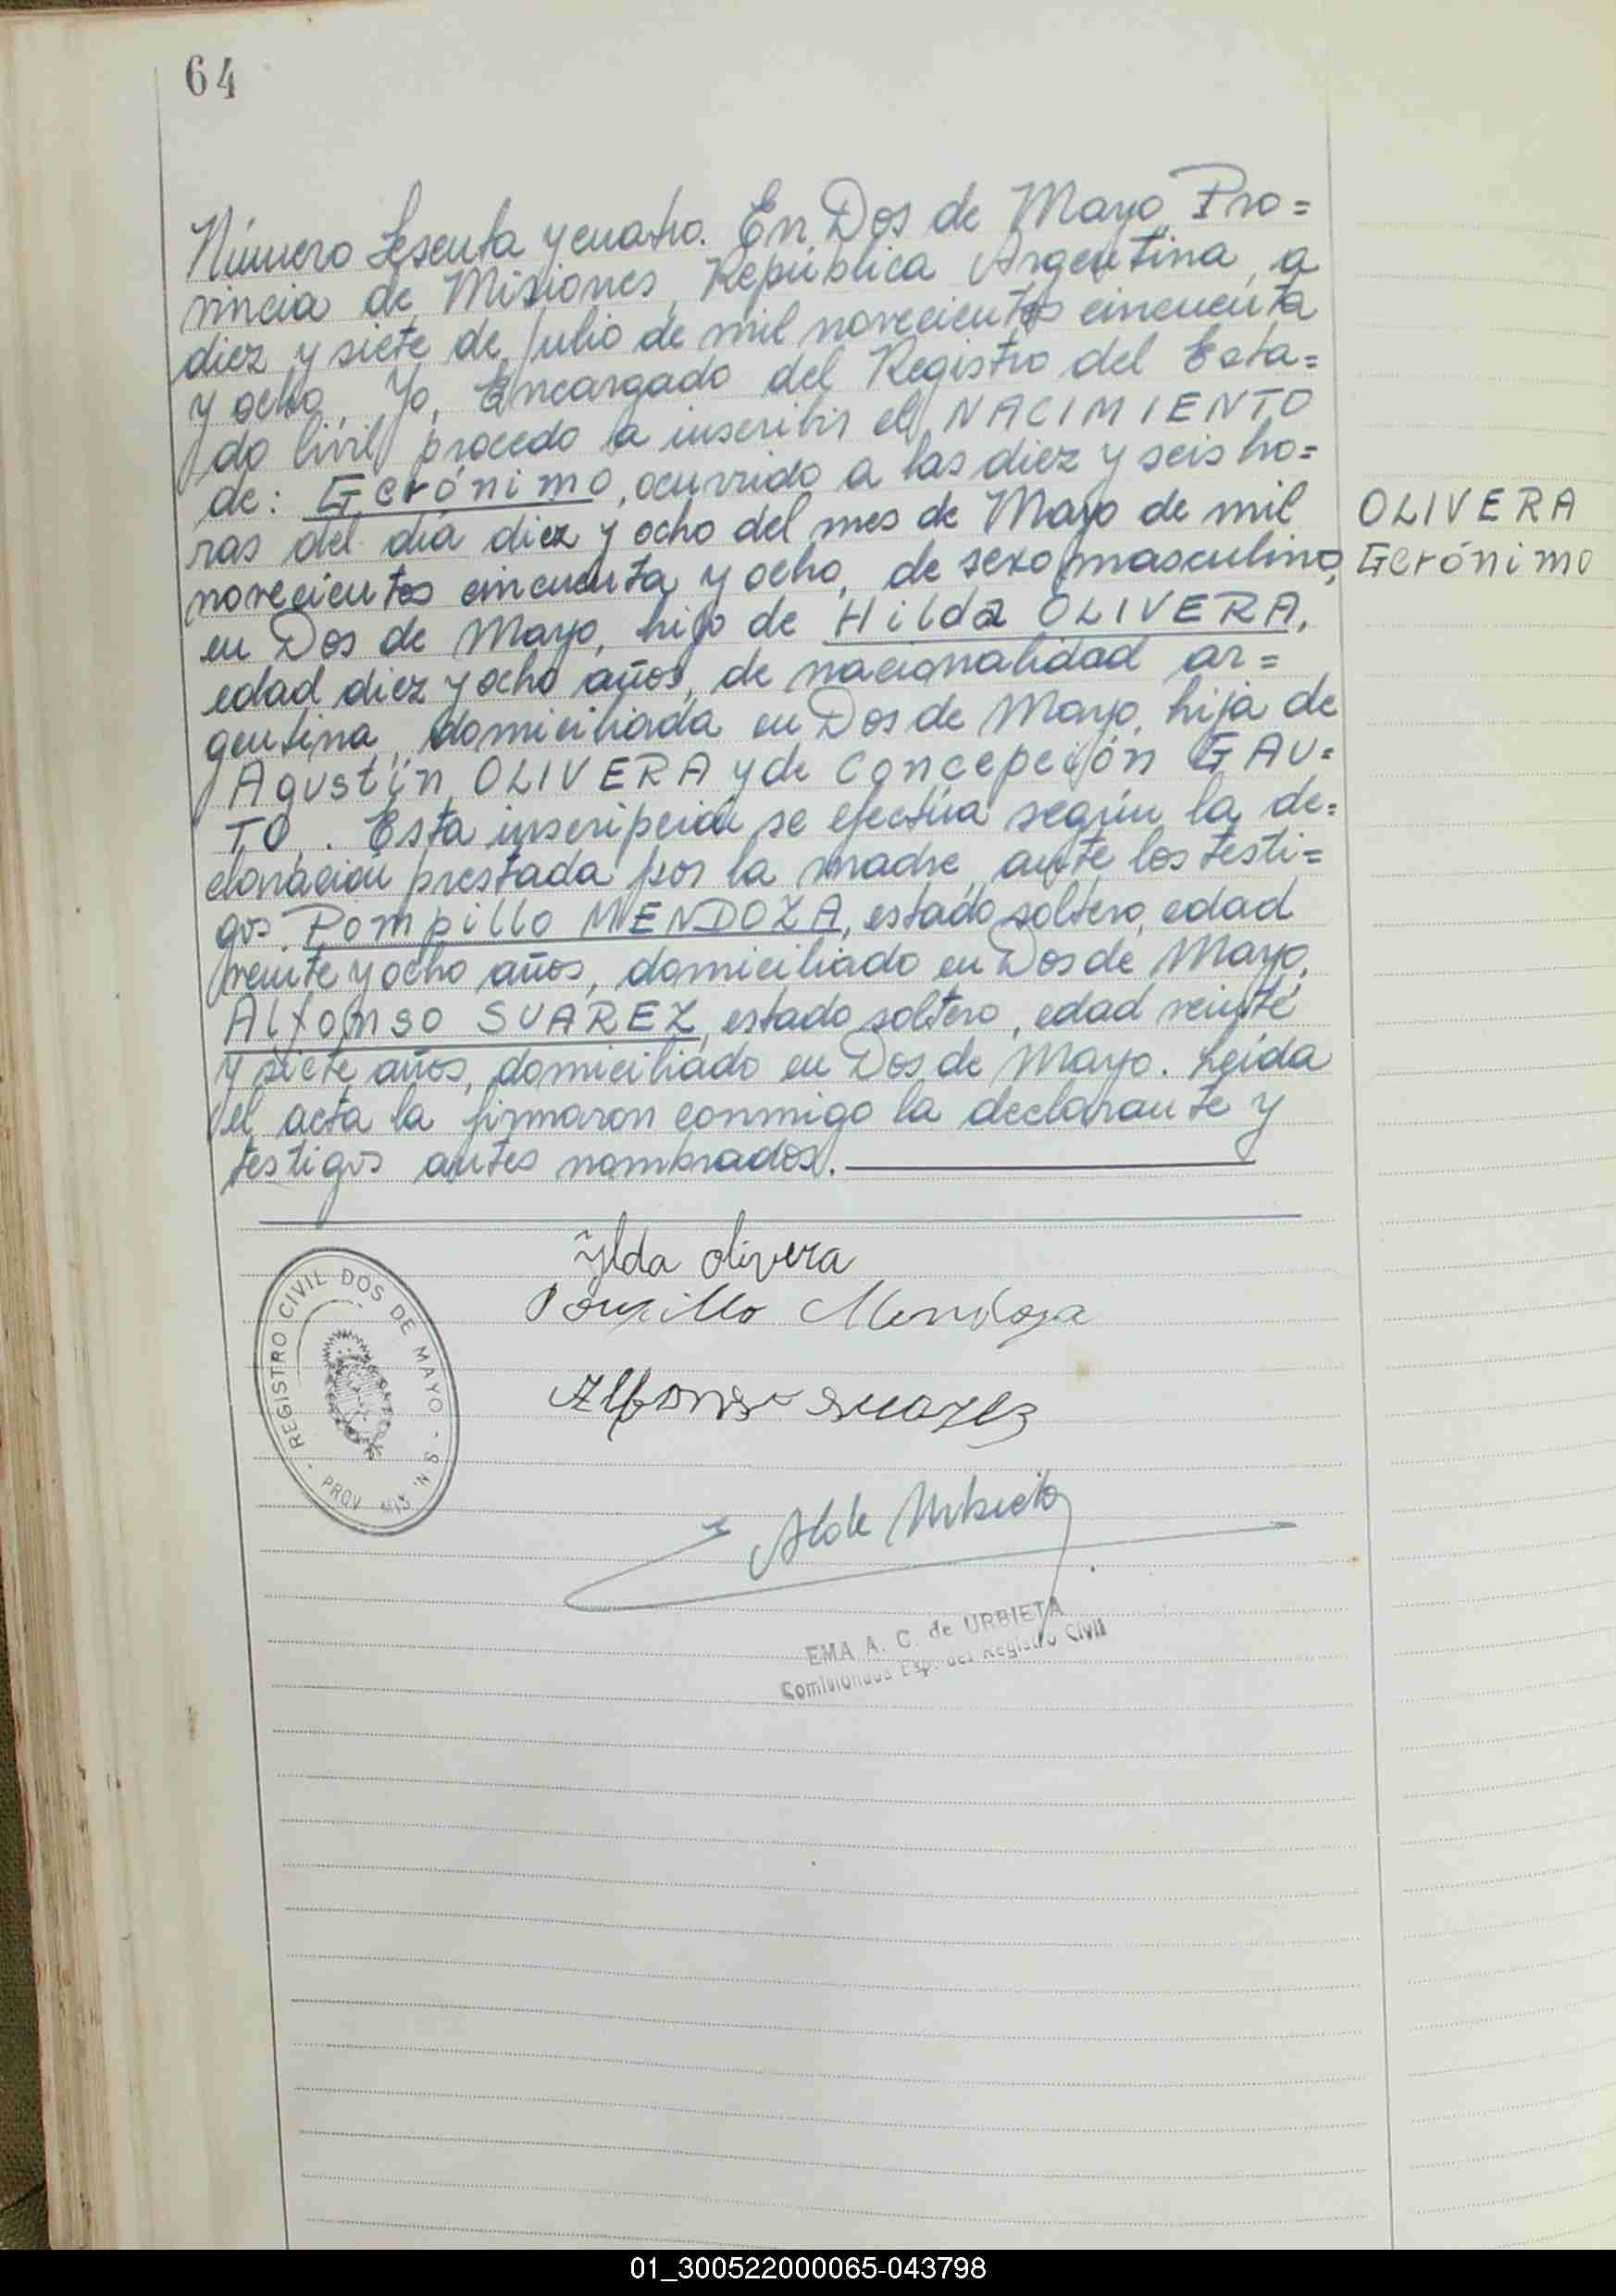 64
Número Sesenta y cuatro. En Dos de Mayo, Pro=
vincia de Misiones, República Argentina, a
diez y siete de Julio de mil novecientos cincuenta
y ocho, Yo, Encargado del Registro del Esta=
do Civil, procedo a inscribir el NACIMIENTO
de: Gerónimo, ocurrido a las diez y seis ho=
ras del día diez y ocho del mes de Mayo de mil
OLIVERA
novecientos cincuenta y ocho, de sexo masculino,
Gerónimo
en Dos de Mayo, hijo de Hilda OLIVERA,
edad diez y ocho años, de nacionalidad ar=
gentina, domiciliada en Dos de Mayo, hija de
Agustín OLIVERA y de Concepción GAU=
TO. Esta inscripción se efectúa según la de=
claración prestada por la madre, ante los testi=
gos. Pompillo MENDOZA, estado soltero, edad
veinte y ocho años, domiciliado en Dos de Mayo,
Alfonso SUAREZ, estado soltero, edad veinte
y siete años, domiciliado en Dos de Mayo. Leída
el acta la firmaron conmigo la declarante y
testigos antes nombrados.
Ylda olivera
Pompillo Mendoza
Alfonso suarez
REGISTRO CIVIL DOS DE MAYO - S. N. -
PROV. MIS.
A C de Urbieta
EMA A. C. de URBIETA
Comisionada Esp. del Registro Civil
01_300522000065-043798